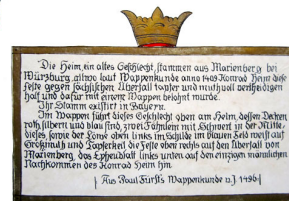 Die Heim, ein altes Geschlecht, stammen aus Marienberg bei
Würzburg, allwo laut Wappenkunde anno 1409 Konrad Heim diese
Feste gegen sächsischen Überfall tapfer und mutvoll vertheidigen
half und dafür mit einem Wappen belohnt wurde.
Ihr Stamm existirt in Bayern.
Im Wappen führt dieses Geschlecht oben am Helm, dessen Decken
roth, silbern und blau sind, zwei Fähnlein mit Schwert in der Mitte,
dieses sowie der Löwe oben links im Schilde im blauen Feld weist auf
Großmuth und Tapferkeit die Feste oben rechts auf den Überfall von
Marienberg das Epheublatt links unten auf den einzigen männlichen
Nachkommen des Konrad Heim hin.
Aus Paul Fürst's Wappenkunde v. J. 1496